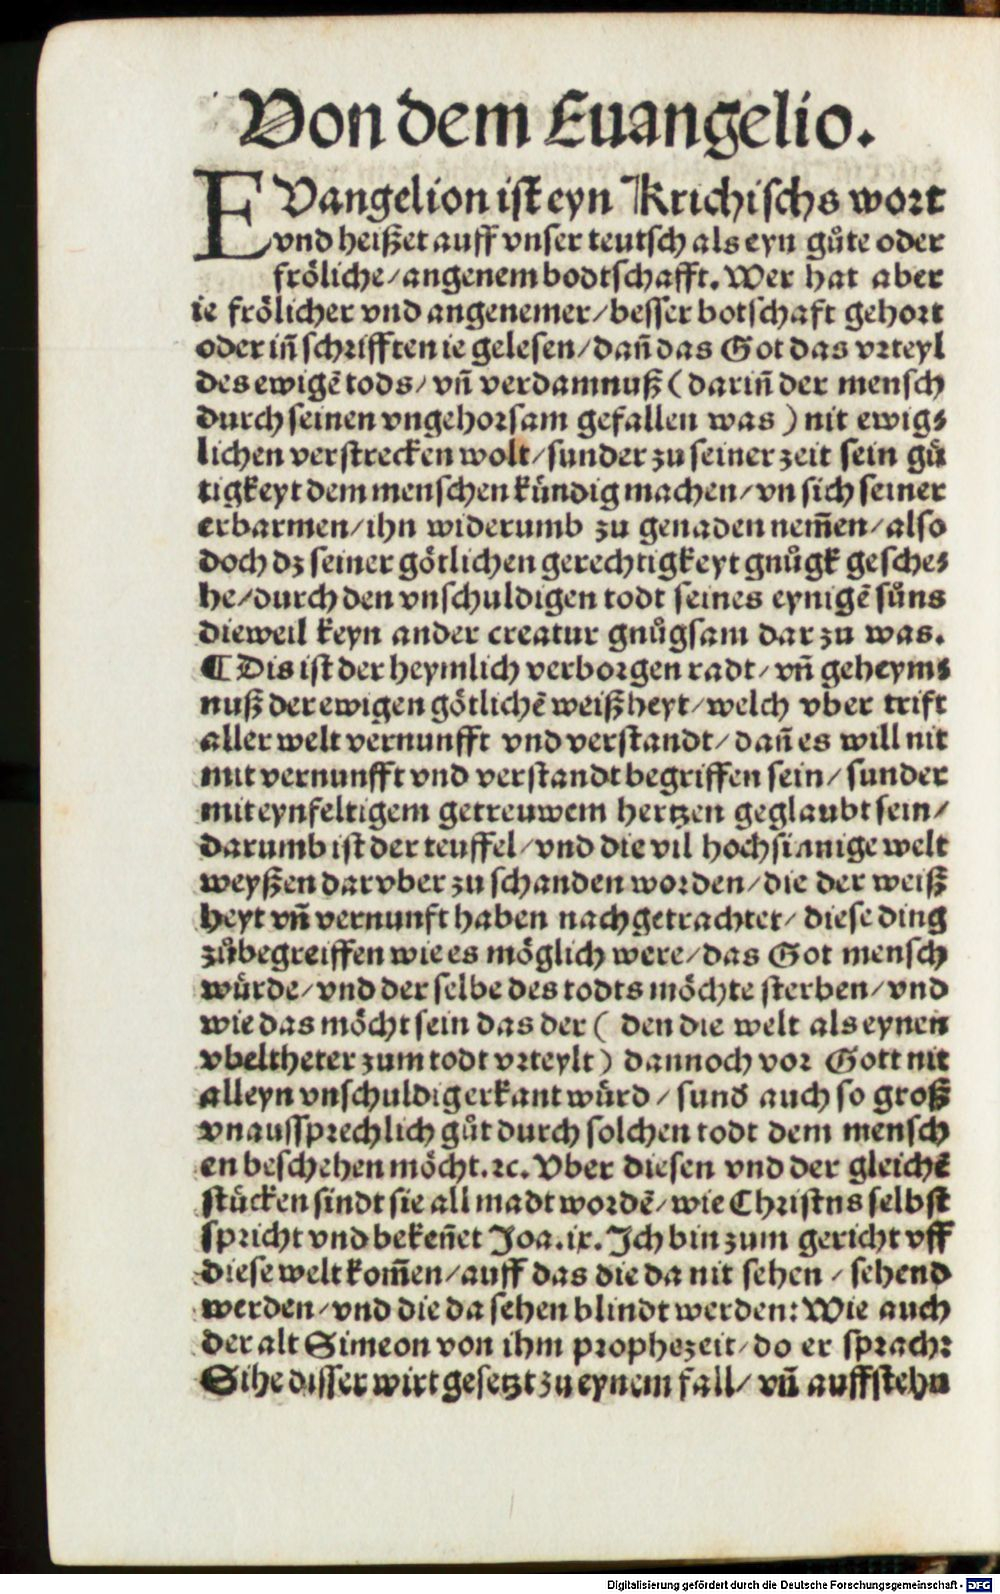 Von dem Euangelio.
EVangelion ist eyn Krichischs wort
vnd heißet auff vnser teutsch als eyn gůte oder
fröliche/ angenem bodtschafft. Wer hat aber
ie frölicher vnd angenemer/ besser botschaft gehort
oder iñ schrifften ie gelesen/ dañ das Got das vrteyl
des ewigẽ tods/ vñ verdamnuß ( dariñ der mensch
durch seinen vngehorsam gefallen was ) nit ewig⸗
lichen verstrecken wolt/ sunder zu seiner zeit sein gů
tigkeyt dem menschen kündig machen/ vn sich seiner
erbarmen/ ihn widerumb zu genaden nem̃en/ also
doch dz seiner götlichen gerechtigkeyt gnůgk gesche⸗
he/ durch den vnschuldigen todt seines eynigẽ sůns
dieweil keyn ander creatur gnůgsam dar zu was.
¶ Dis ist der heymlich verborgen radt/ vñ geheym⸗
nuß der ewigen götlichẽ weißheyt/ welch vber trift
aller welt vernunfft vnd verstandt/ dañ es will nit
mit vernunfft vnd verstandt begriffen sein/ sunder
mit eynfeltigem getreuwem hertzen geglaubt sein/
darumb ist der teuffel/ vnd die vil hochsinnige welt
weyßen darvber zu schanden worden/ die der weiß
heyt vñ vernunft haben nachgetrachtet/ diese ding
zůbegreiffen wie es möglich were/ das Got mensch
würde/ vnd der selbe des todts möchte sterben/ vnd
wie das möcht sein das der ( den die welt als eynen
vbeltheter zum todt vrteylt ) dannoch vor Gott nit
alleyn vnschuldig erkant würd / sund̛ auch so groß
vnaussprechlich gůt durch solchen todt dem mensch
en beschehen möcht. ꝛc. Vber diesen vnd der gleichẽ
stücken sindt sie all madt wordẽ/ wie Christns selbst
spricht vnd bekeñet Joa. ix. Ich bin zum gericht vff
diese welt kom̃en/ auff das die da nit sehen / sehend
werden/ vnd die da sehen blindt werden: Wie auch
der alt Simeon von ihm prophezeit/ do er sprach:
Sihe disser wirt gesetzt zu eynem fall/ vñ auffstehn
Digitalisierung gefördert durch die Deutsche Forschungsgemeinschaft - DFG